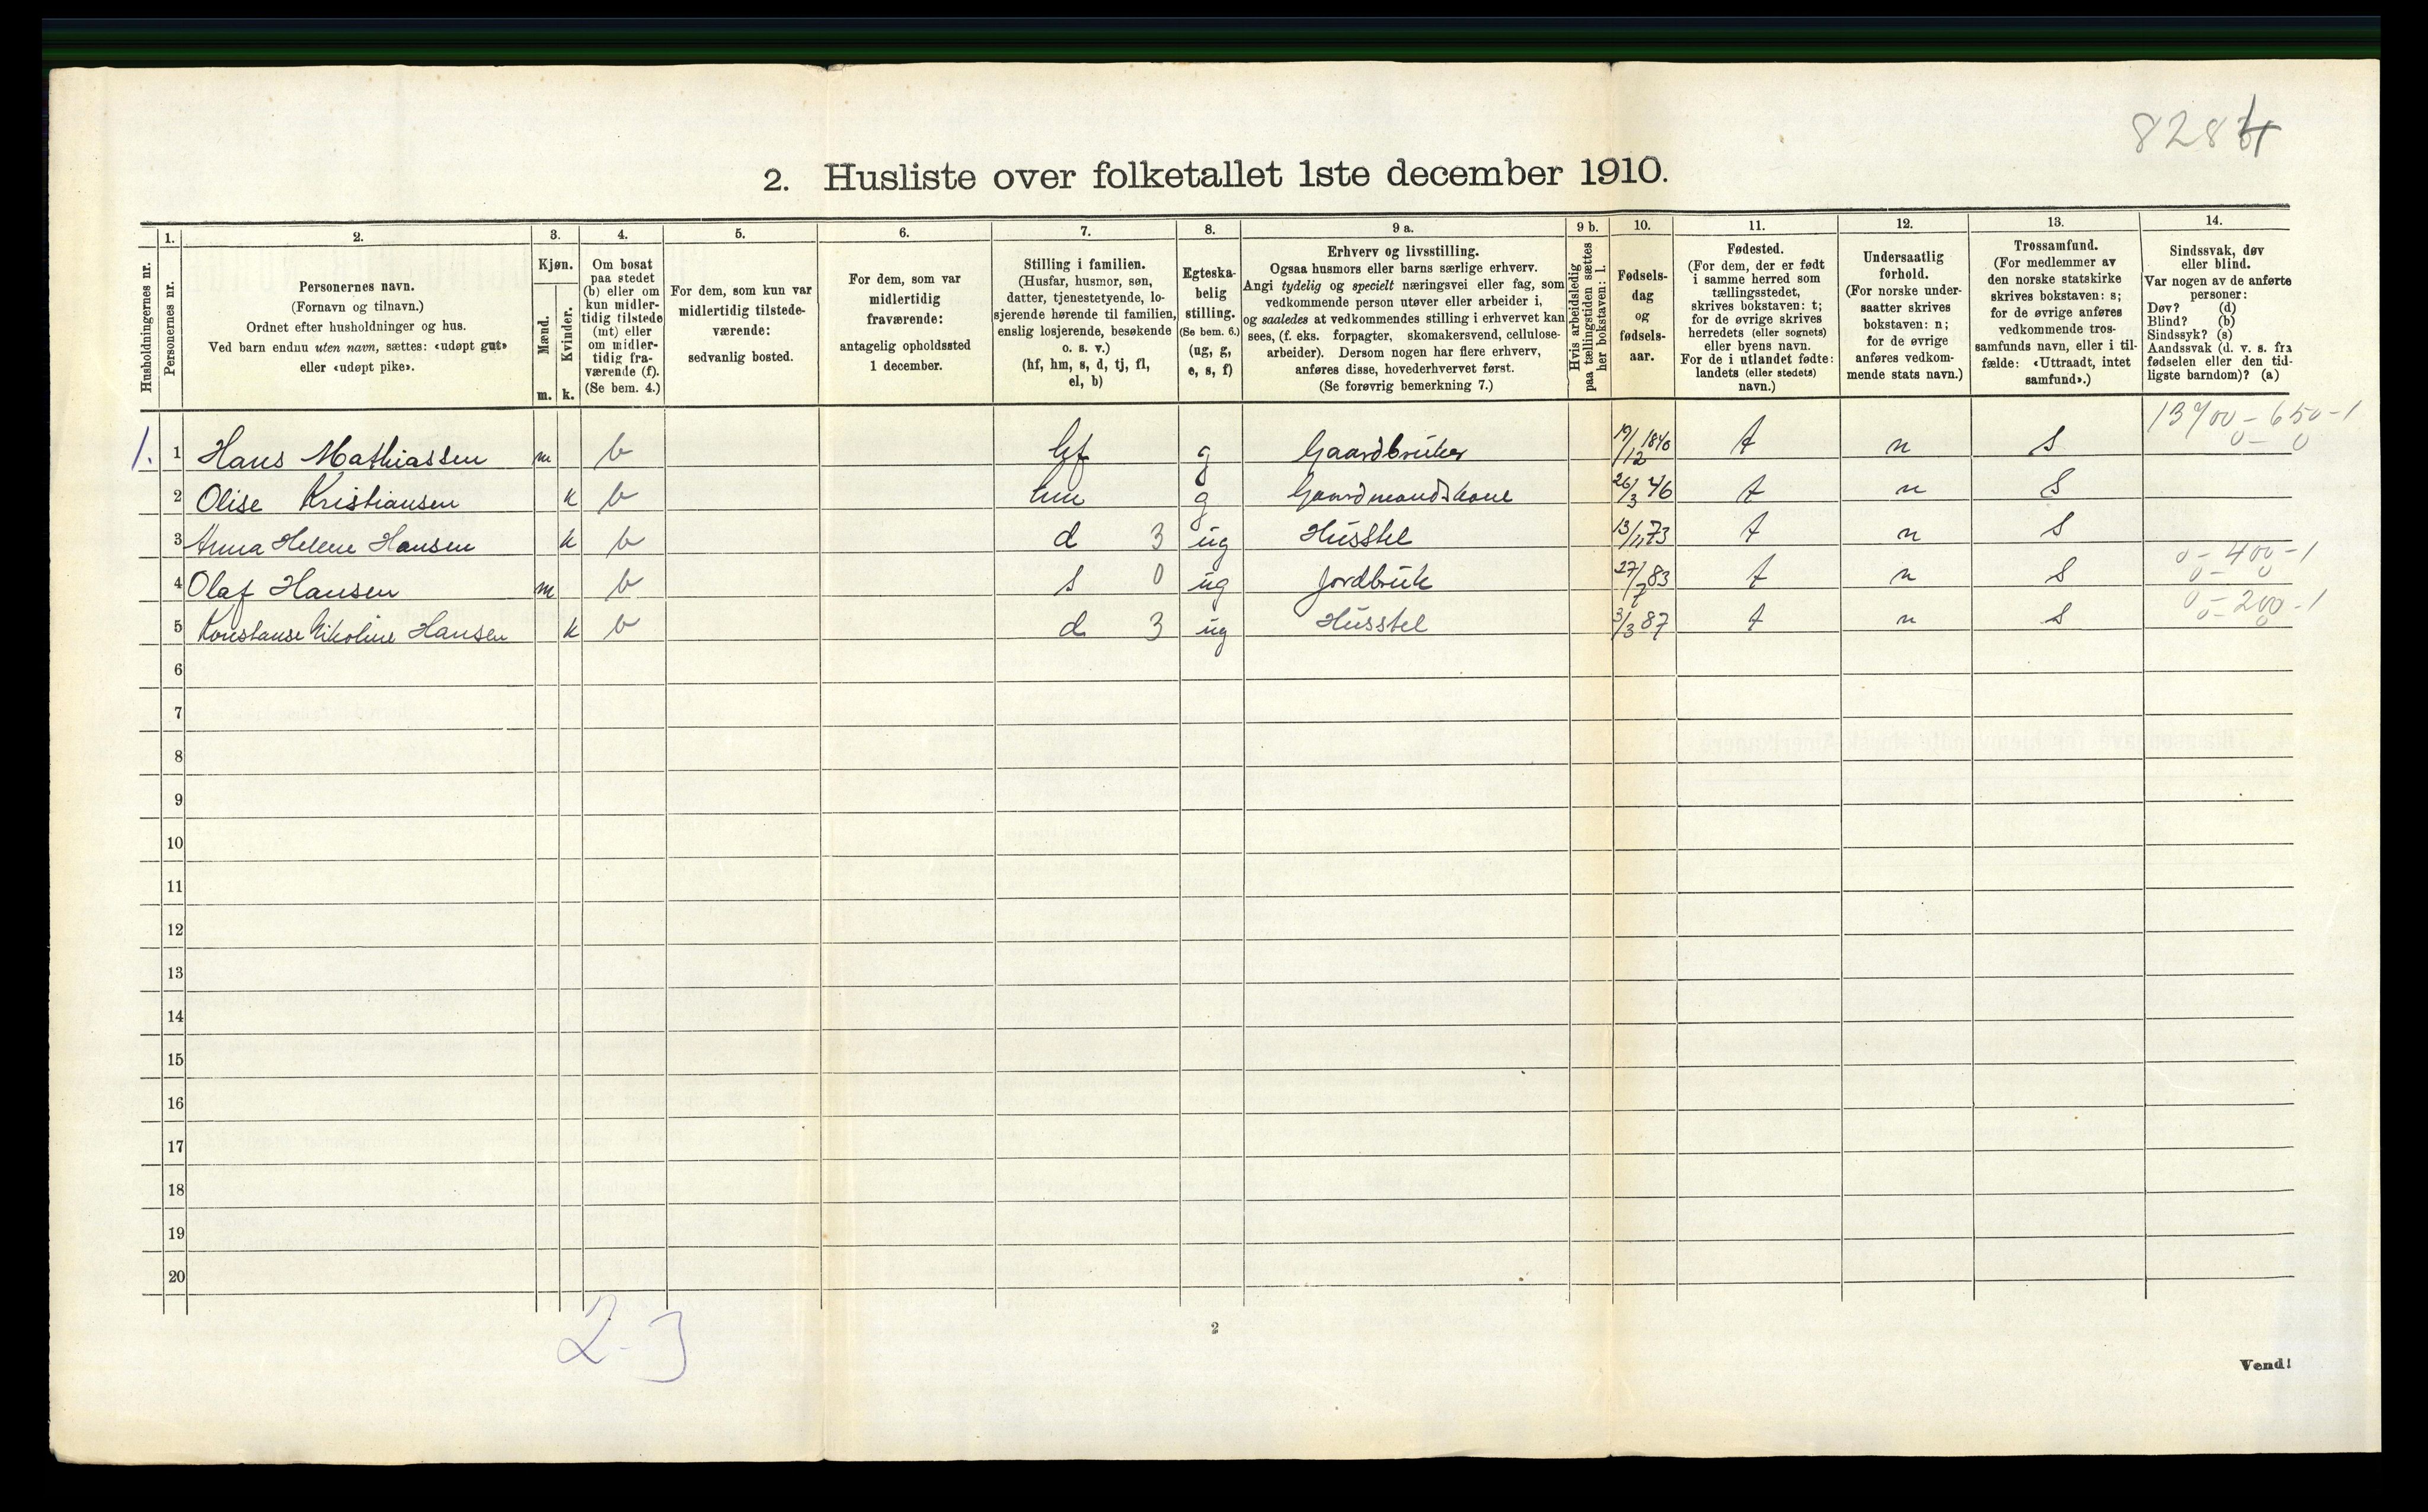 8284
2. Husliste over folketallet 1ste december 1910.
Husholdningernes nr.
1.
Personernes nr.
2.
Personernes navn.
(Fornavn og tilnavn.)
Ordnet efter husholdninger og hus.
Ved barn endnu uten navn, sættes: «udøpt gut»
eller «udøpt pike».
3.
Kjøn.
Mænd.
Kvinder.
m. k.
4.
Om bosat
paa stedet
(b) eller om
kun midler-
tidig tilstede
(mt) eller
om midler-
tidig fra-
værende (f).
(Se bem. 4.)
5.
For dem, som kun var
midlertidig tilstede-
værende:
sedvanlig bosted.
6.
For dem, som var
midlertidig
fraværende:
antagelig opholdssted
1 december.
7.
Stilling i familien.
(Husfar, husmor, søn,
datter, tjenestetyende, lo-
sjerende hørende til familien,
enslig losjerende, besøkende
o. s. v.)
(hf, hm, s, d, tj, fl,
el, b)
8.
Egteska-
belig
stilling.
(Se bem. 6.)
(ug, g,
e, s, f)
9 a.
Erhverv og livsstilling.
Ogsaa husmors eller barns særlige erhverv.
Angi tydelig og specielt næringsvei eller fag, som
vedkommende person utøver eller arbeider i,
og saaledes at vedkommendes stilling i erhvervet kan
sees, (f. eks. forpagter, skomakersvend, cellulose-
arbeider). Dersom nogen har flere erhverv,
anføres disse, hovederhvervet først.
(Se forøvrig bemerkning 7.)
9 b.
Hvis arbeidsledig
paa tællingstiden sættes
her bokstaven: l.
10.
Fødsels-
dag
og
fødsels-
aar.
11.
Fødested.
(For dem, der er født
i samme herred som
tællingsstedet,
skrives bokstaven: t;
for de øvrige skrives
herredets (eller sognets)
eller byens navn.
For de i utlandet fødte:
landets (eller stedets)
navn.)
12.
Undersaatlig
forhold.
(For norske under-
saatter skrives
bokstaven: n;
for de øvrige
anføres vedkom-
mende stats navn.)
13.
Trossamfund.
(For medlemmer av
den norske statskirke
skrives bokstaven: s;
for de øvrige anføres
vedkommende tros-
samfunds navn, eller i til-
fælde: «Uttraadt, intet
samfund».)
14.
Sindssvak, døv
eller blind.
Var nogen av de anførte
personer:
Døv? (d)
Blind? (b)
Sindssyk? (s)
Aandssvak (d. v. s. fra
fødselen eller den tid-
ligste barndom)? (a)
13700 - 650 - 1
0 - 0
1. 1 Hans Mathiassen m b hf g Gaardbruker 19/12 1840 t n s
2 Olise Kristiansen k b hm g Gaardmandskone 26/3 46 t n s
3 Anna Helene Hansen k b d 3 ug Husstel 13/11 73 t n s
0 - 400 - 1
0 - 0
4 Olaf Hansen m b s 0 ug Jordbruk 27/7 83 t n s
0 - 200 - 1
0 - 0
5 Konstanse Nikoline Hansen k b d 3 ug Husstel 3/3 87 t n s
6
7
8
9
10
11
12
13
14
15
16
17
18
19
20
2-3
2
Vend!